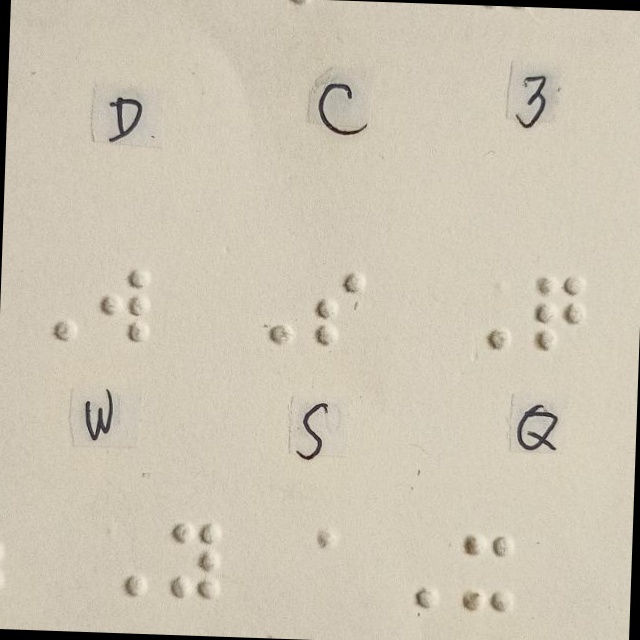 D C 3
⠠⠺ ⠠⠎ ⠠⠟
W S Q
⠠⠽ ⠠⠭